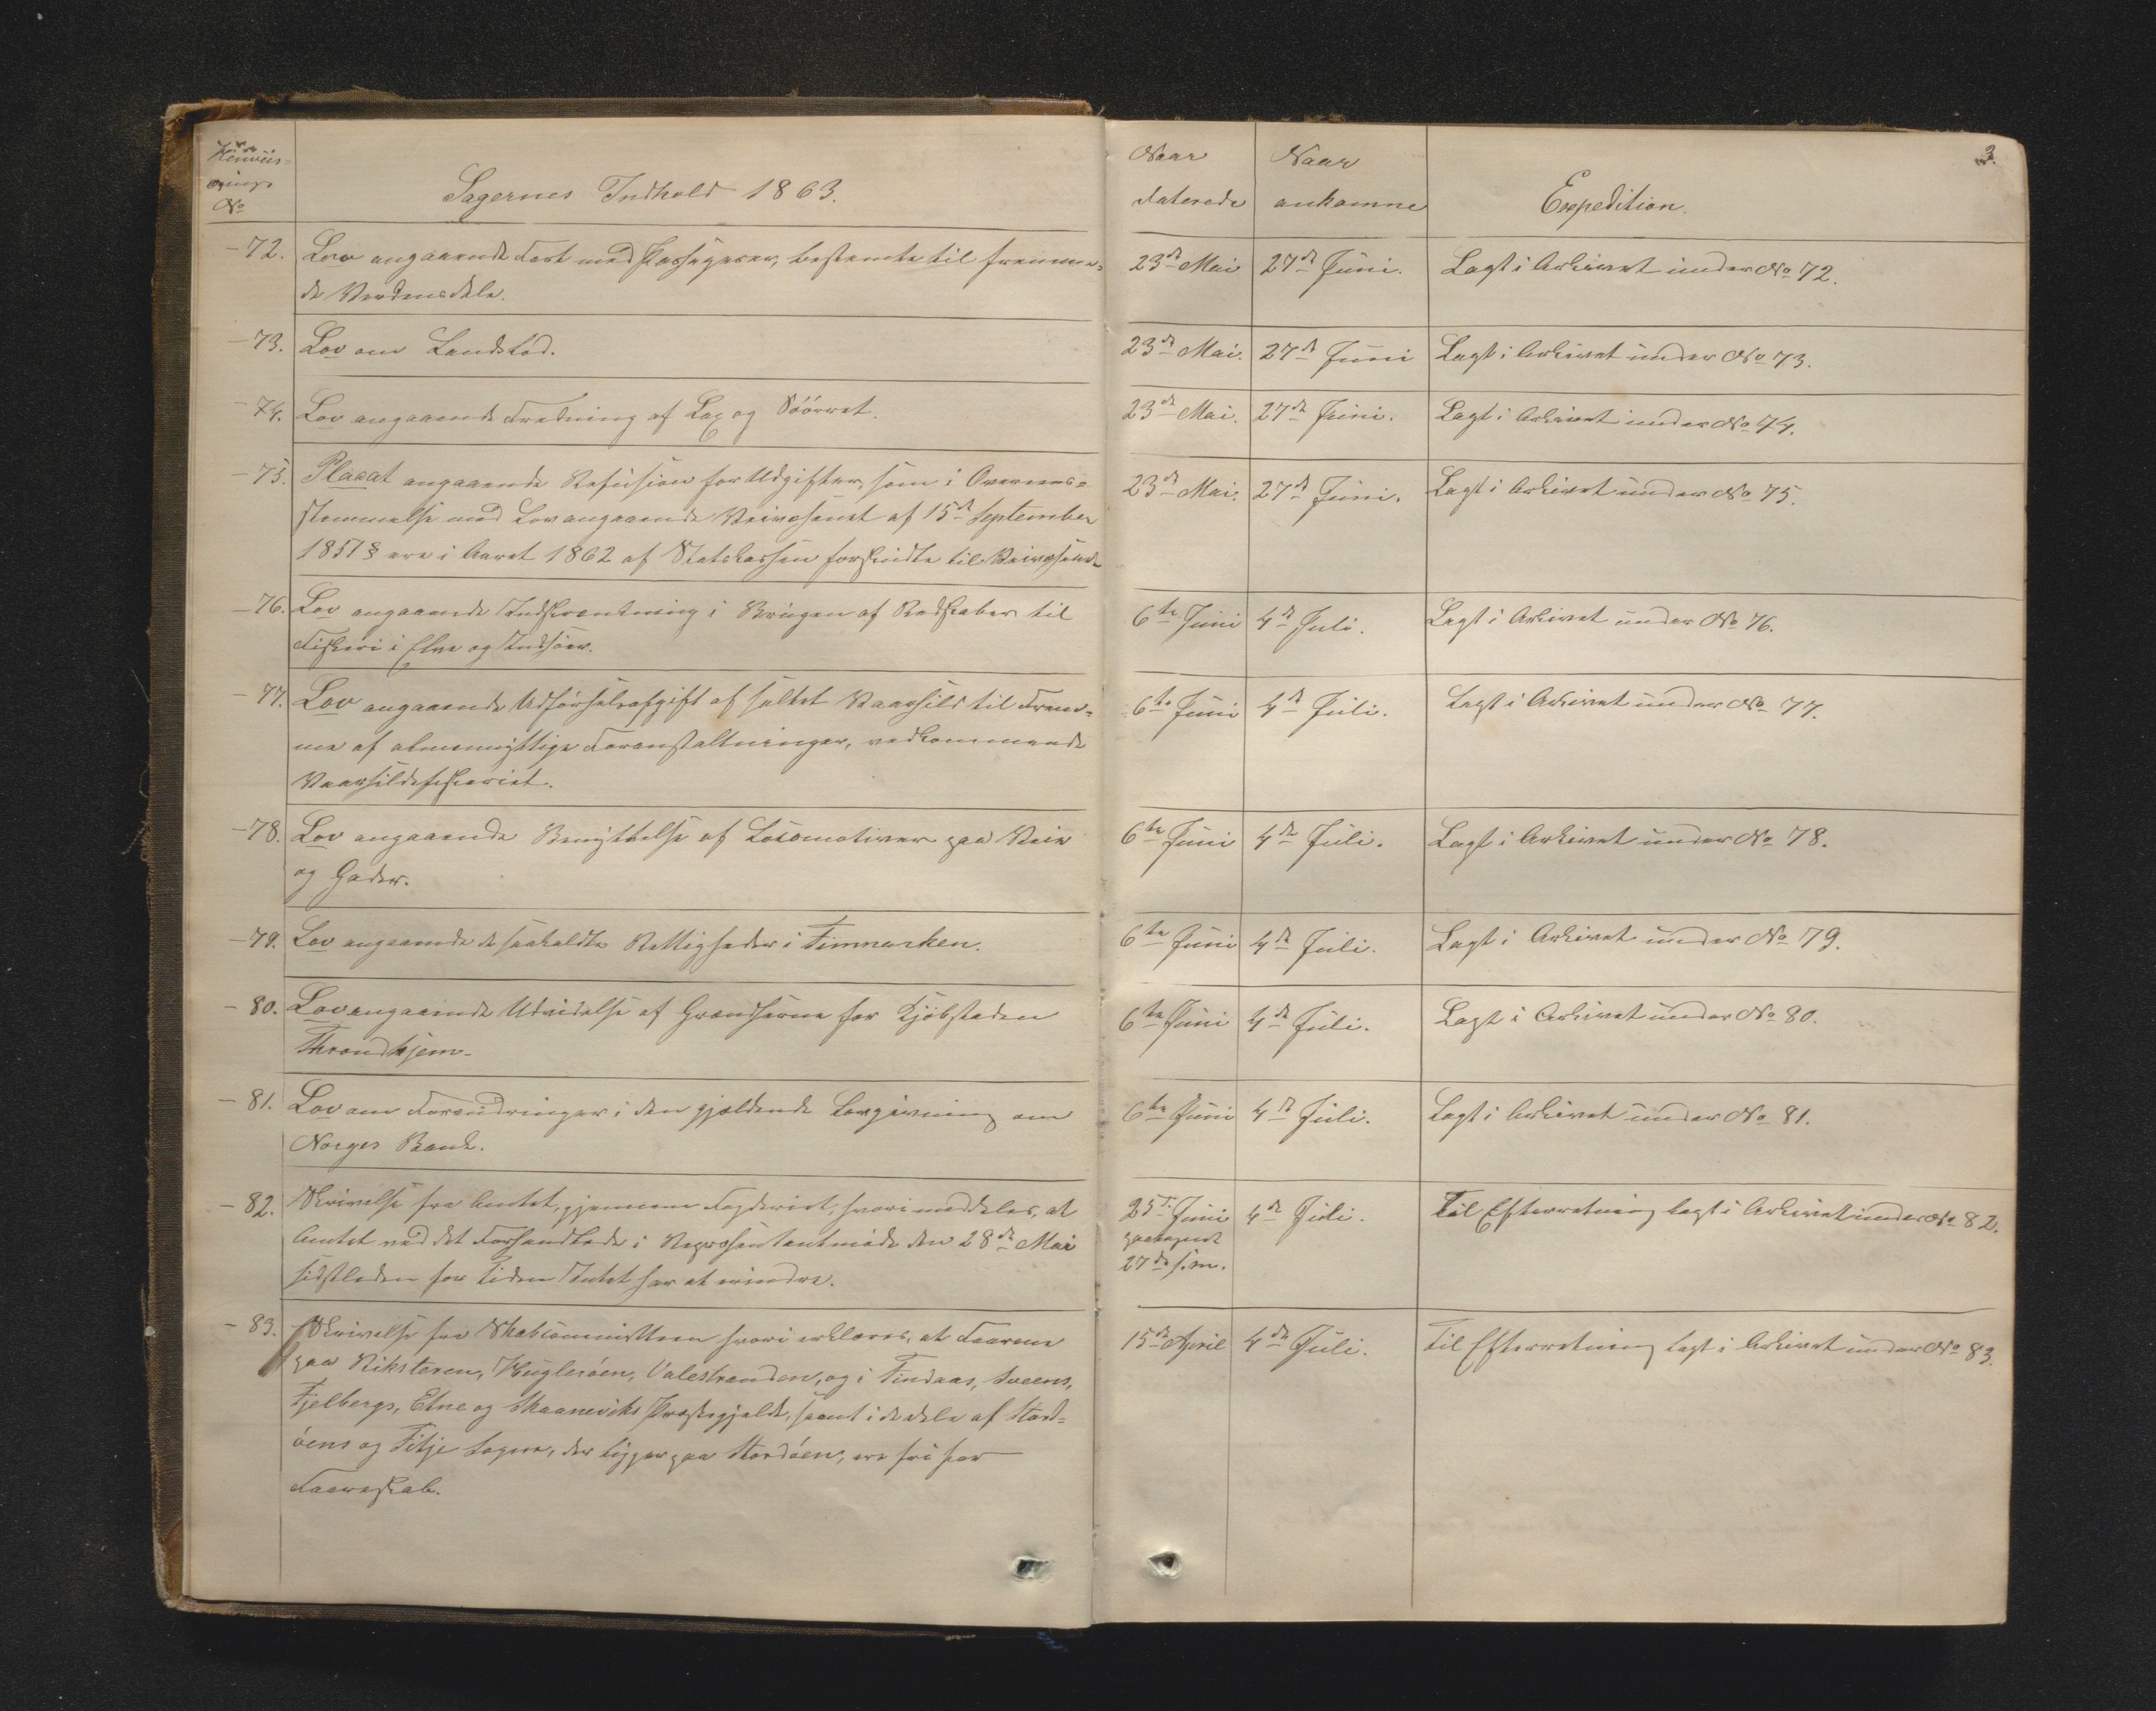 Henviis=
nings
No
Sagernes Indhold 1863.
Naar
daterede
Naar
ankomne
Expedition.
3.
- 72. Lov angaaende Fart med Passagerer, bestemte til fremme=
de Verdensdele.
23de Mai 27de Juni. Lagt i Arkivet under No 72.
- 73. Lov om Landskod.
23de Mai. 27de Juni Lagt i Arkivet under No 73.
- 74. Lov angaaende Fredning af Lax og Söörret.
23de Mai. 27de Juni. Lagt i Arkivet under No 74.
- 75. Placat angaaende Refusion for Udgifter, som i Overeens=
stemmelse med Lov angaaende Veivæsenet af 15de September
1851 § ere i Aaret 1862 af Statskassen forskudte til Veivæsenet
23de Mai. 27de Juni. Lagt i Arkivet under No 75.
- 76. Lov angaaende Indskrænkning i Brugen af Redskaber til
Fiskeri i Elve og Indsöer.
6te Juni 4de Juli. Lagt i Arkivet under No 76.
- 77. Lov angaaende Udförselsafgift af saltet Vaarsild til Frem=
me af almennyttige Foranstaltninger, vedkommende
Vaarsildefiskeriet.
6te Juni 4de Juli. Lagt i Arkivet under No 77.
- 78. Lov angaaende Benyttelse af Locomotiver paa Veie
og Gader.
6te Juni 4de Juli. Lagt i Arkivet under No 78.
- 79. Lov angaaende de saakaldte Rettigheder i Finmarken.
6te Juni 4de Juli. Lagt i Arkivet under No 79.
- 80. Lov angaaende Udvidelse af Grændserne for Kjöbstaden
Throndhjem.
6te Juni 4de Juli. Lagt i Arkivet under No 80.
- 81. Lov om Forandringer i den gjældende Lovgivning om
Norges Bank.
6te Juni 4de Juli. Lagt i Arkivet under No 81.
- 82. Skrivelse fra Amtet, gjennem Fogderiet, hvori meddeles, at
Amtet ved det Forhandlede i Repræsentantmöde den 28de Mai
sidstleden for Tiden Intet har at erindre.
25de Juni
paategnet
27de s. m.
4de Juli.
Til Efterretning lagt i Arkivet under No 82.
- 83. Skrivelse fra Skabcommitteen hvori erklæres, at Faarene
paa Riksteren, Huglesöen, Valestranden, og i Findaas, Sveens,
Fjelbergs, Etne og Skaaneviks Præstegjeld, samt i de dele af Stord=
öens og Fitje Sogne, der ligger paa Stordöen, ere fri for
Faareskab.
15de April 4de Juli. Til Efterretning lagt i Arkivet under No 83.